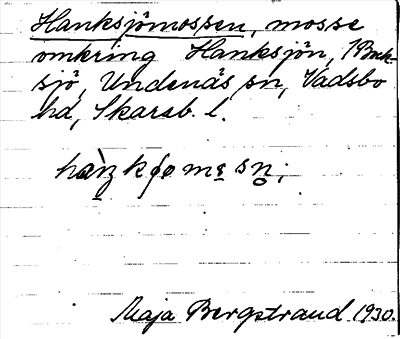 Hanksjömossen, mosse
omkring Hanksjön, 1 Bock-
sjö, Undenäs sn, Vadsbo
hd, Skarab. l.
Maja Bergstrand 1930.